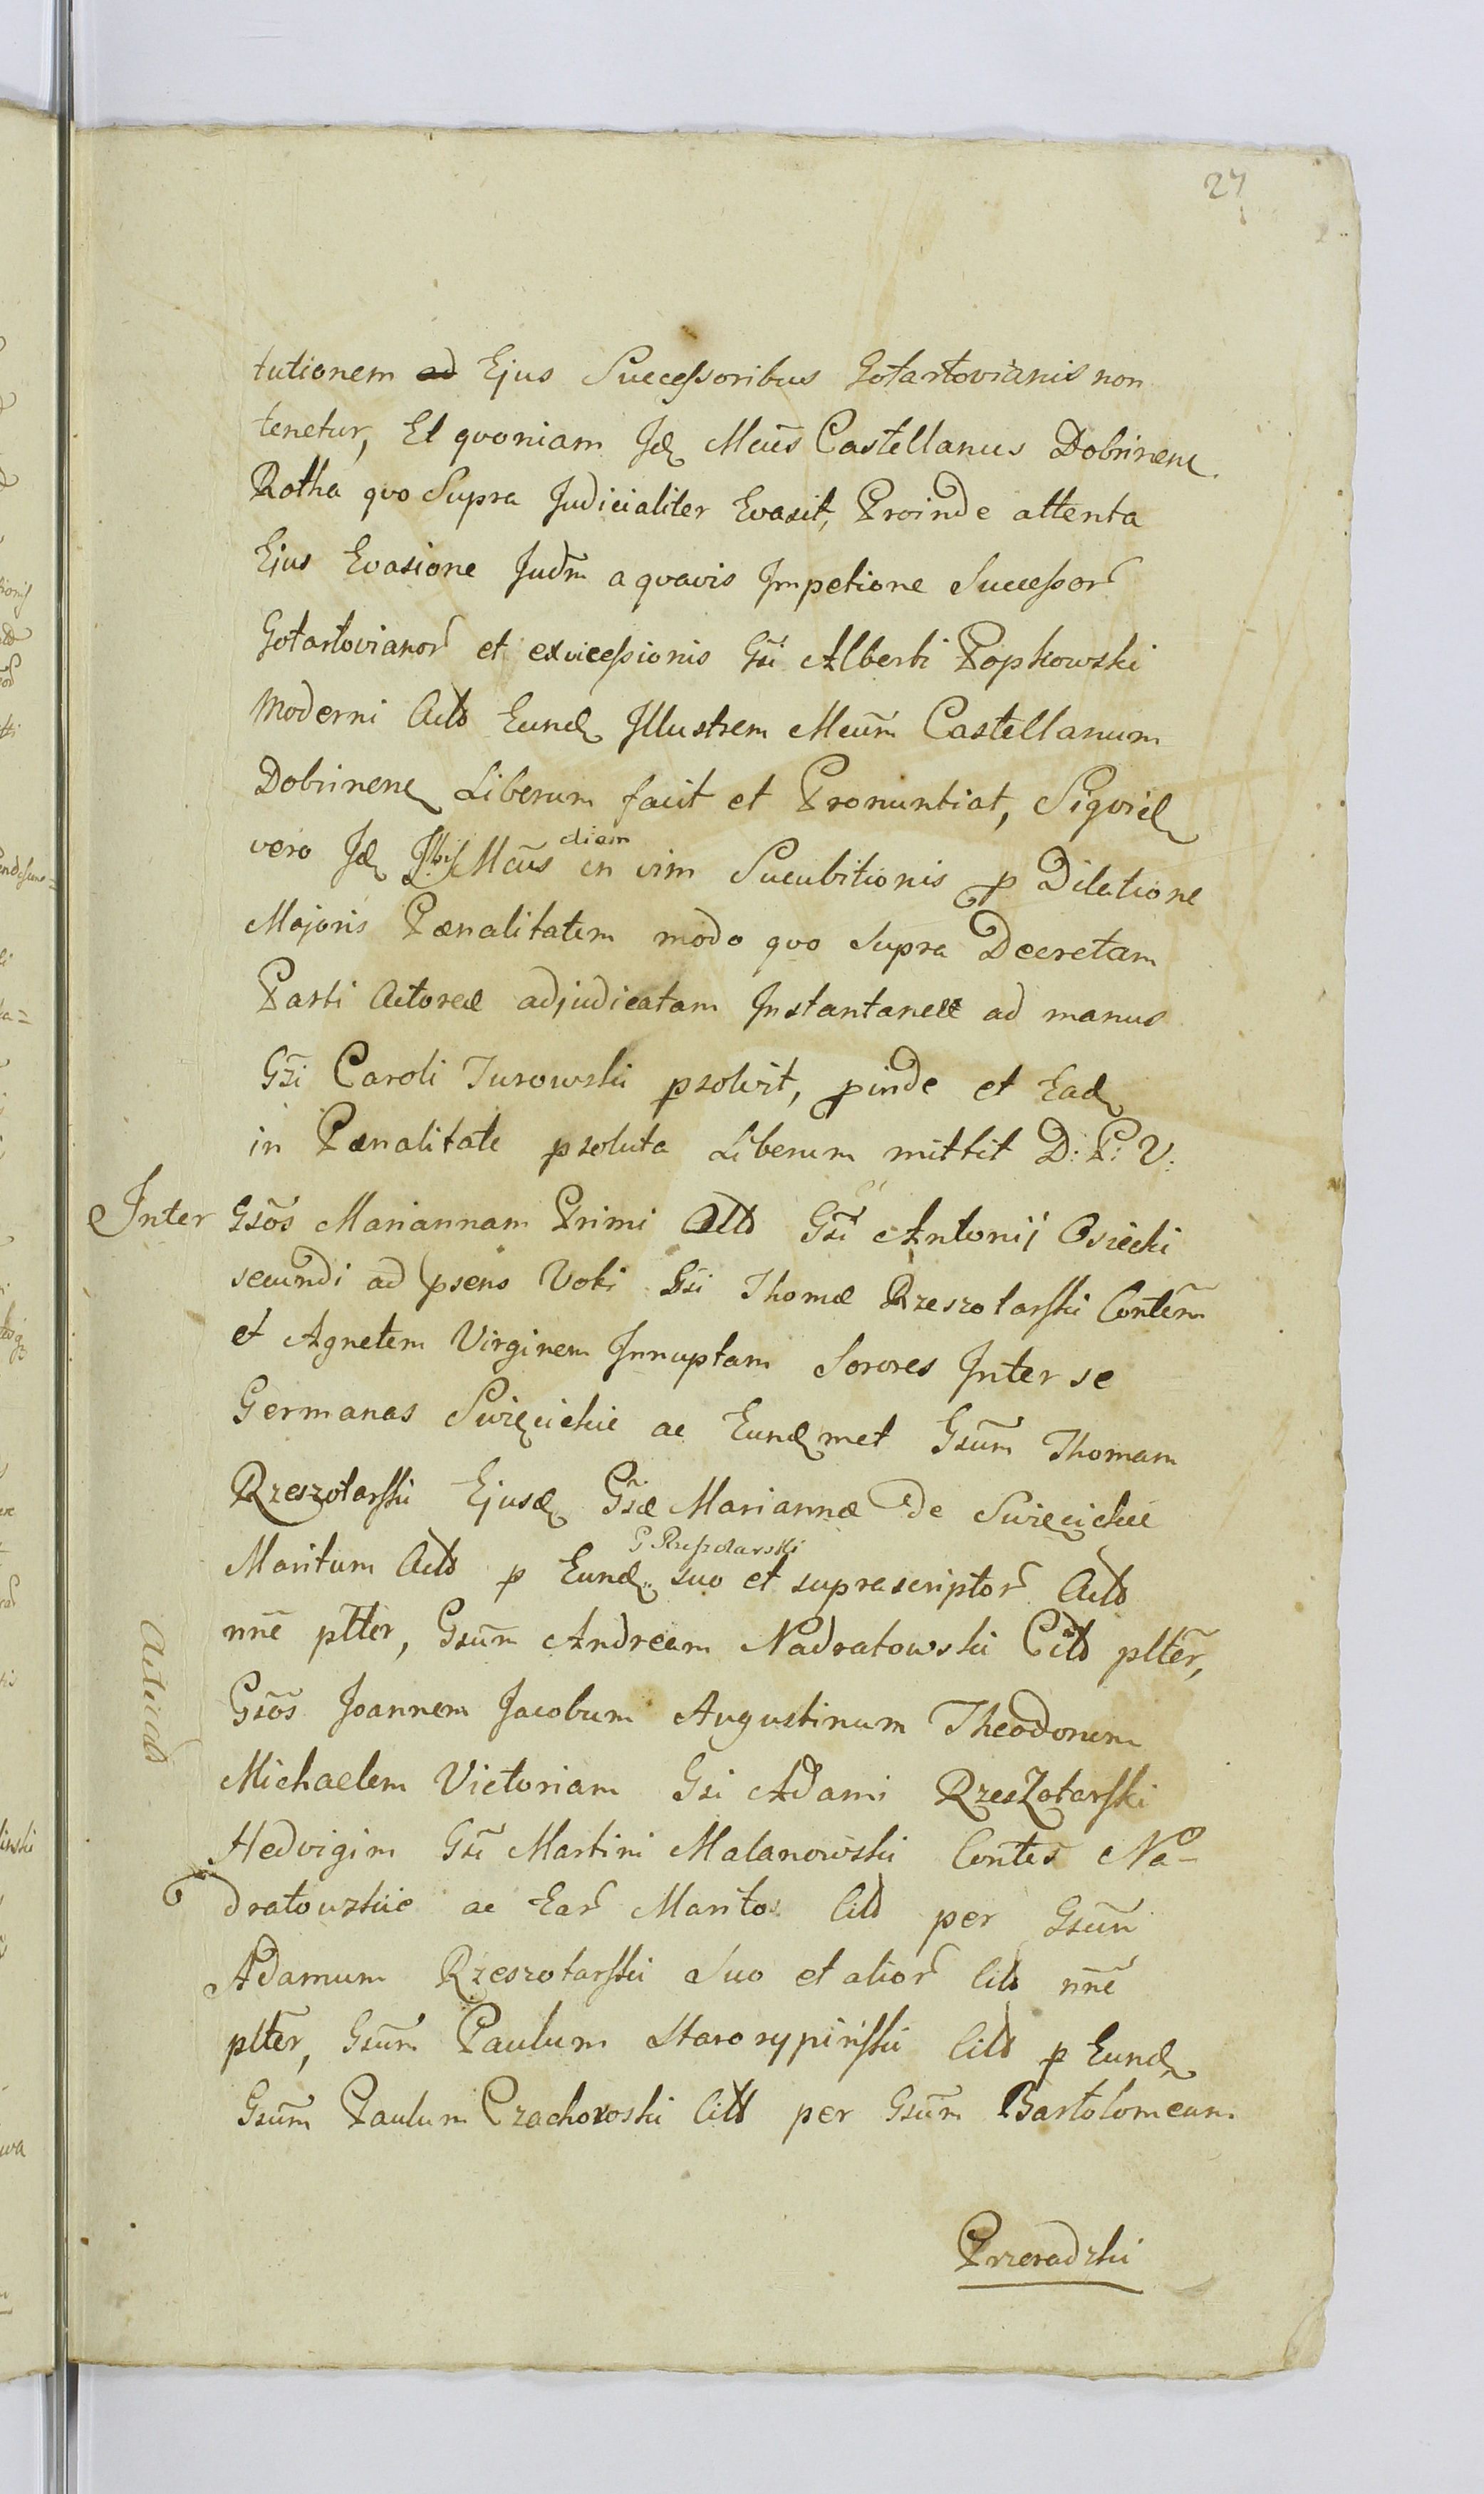 27
tutionem ad Ejus Successoribus Gotartovianis non
tenetur, Et quoniam Jd Mcus Castellanus Dobrinen.
Rotha quo Supra Judicialiter Evasit, Proinde attenta
Ejus Evasione Judm a quavis Impetione Successor
Gotartovianor et exvicessionis Gsi Alberti Popkowski
Moderni Acto Eund Illustrem Mcum Castellanum
Dobrinen Liberum facit et Pronuntiat, Siquid
diem
vero Jd Mcus in vim Sucubitionis p Dilatione
Majoris Pænalitatem modo quo Supra Decretam
Parti Actoreæ adjudicatam Instantanee ad manus
Gsi Caroli Turowski psolvit, pinde et Ead
in Pænalitate psoluta Liberum mittit D: P: V:
Inter Gsos Mariannam Primi Gsi Antonij Osiecki
secundi ad psens Voti Gsi Thomæ Rzeszotarski Contem
et Agnetem Virginem Innuptam Sorores Inter se
Germanas Swięcickie ac Eundmet Gsum Thomam
Rzeszotarski Ejusd Gsæ Mariannæ de Swięcickie
G Rzeszotarski
Maritum Acto p Eund suo et suprascriptor Acto
nne pltter, Gsum Andream Nadratowski Citd pltter,
Gsos Joannem Jacobum Augustinum Theodorum
Michaelem Victoriam Gsi Adami Rzeszotarski
Hedvigim Gsi Martini Malanowski Contes Na-
dratowskie ac Ear Maritos Citd per Gsum
Adamum Rzeszotarski Suo et alior Citd nne
pltter, Gsum Paulum Starorypinski Citd p Eund
Gsum Paulum Czachowski Citd per Gsum Bartolomeum
Przeradzki